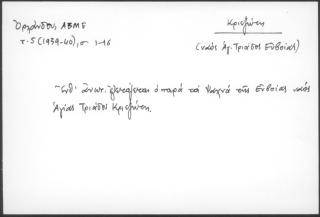 Ὀρλάνδου, ΑΒΜΕ
τ. 5 (1939-40), σ. 3-16
Κριεζώτη
(ναός Ἁγ. Τριάδος Εὐβοίας)
ἐξετάζεται ὁ παρά τά Ψαχνά τῆς Εὐβοίας ναός
Ἁγίας Τριάδος Κριεζώτη.